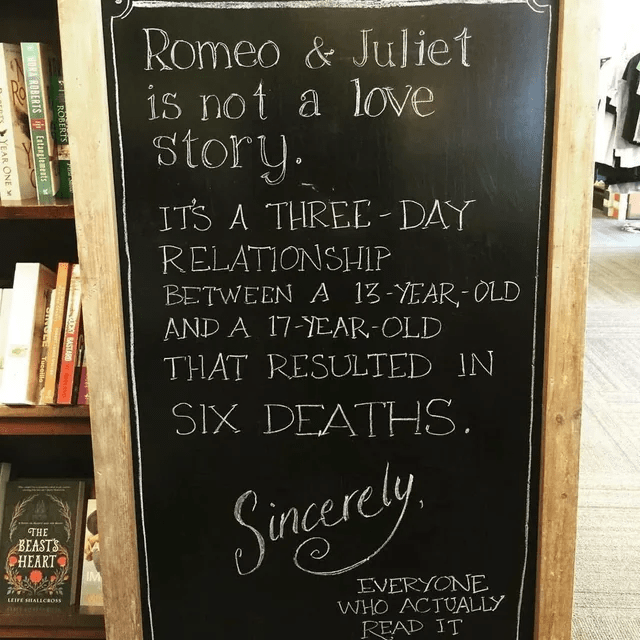 Romeo & Juliet
is not a love
story.
IT'S A THREE-DAY
RELATIONSHIP
BETWEEN A 13-YEAR-OLD
AND A 17-YEAR-OLD
THAT RESULTED IN
SIX DEATHS.
Sincerely,
EVERYONE
WHO ACTUALLY
READ IT
NORA ROBERTS
ROBERTS
YEAR ONE
THE
BEAST'S
HEART
LEIFE SHALLCROSS